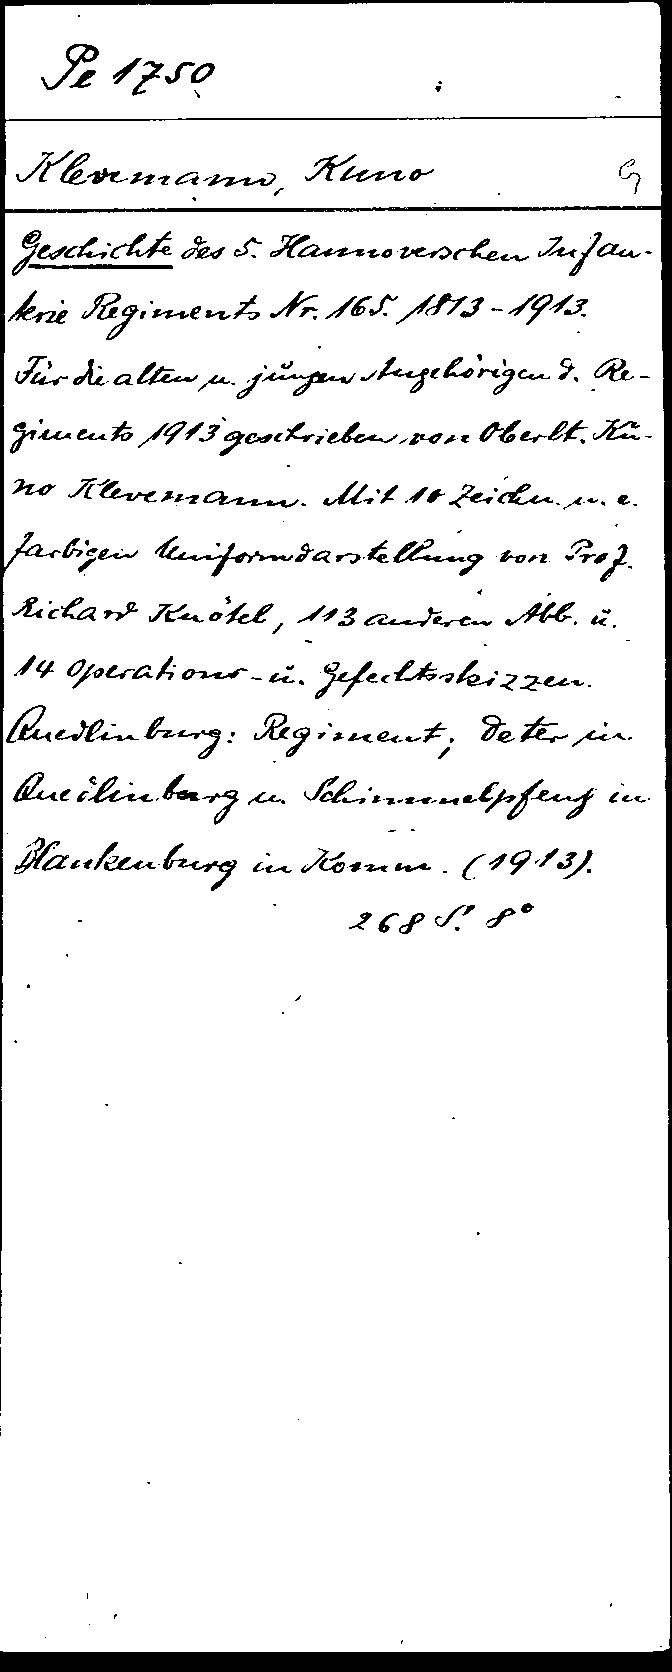 Pe 1750
Klevemann, Kuno
Geschichte des 5. Hannoverschen Infan-
terie Regiments Nr. 165. 1813-1913.
Für die alten u. jungen Angehörigen d. Re-
giments 1913 geschrieben von Oberlt. Ku-
no Klevemann. Mit 10 Zeichn. u. e.
farbigen Uniformdarstellung von Prof.
Richard Knötel, 113 anderen Abb. u.
14 Operations- u. Gefechtsskizzen.
Quedlinburg: Regiment; Deter in
Quedlinburg u. Schimmelpfeng in
Blankenburg in Komm. (1913).
268 S. 8°